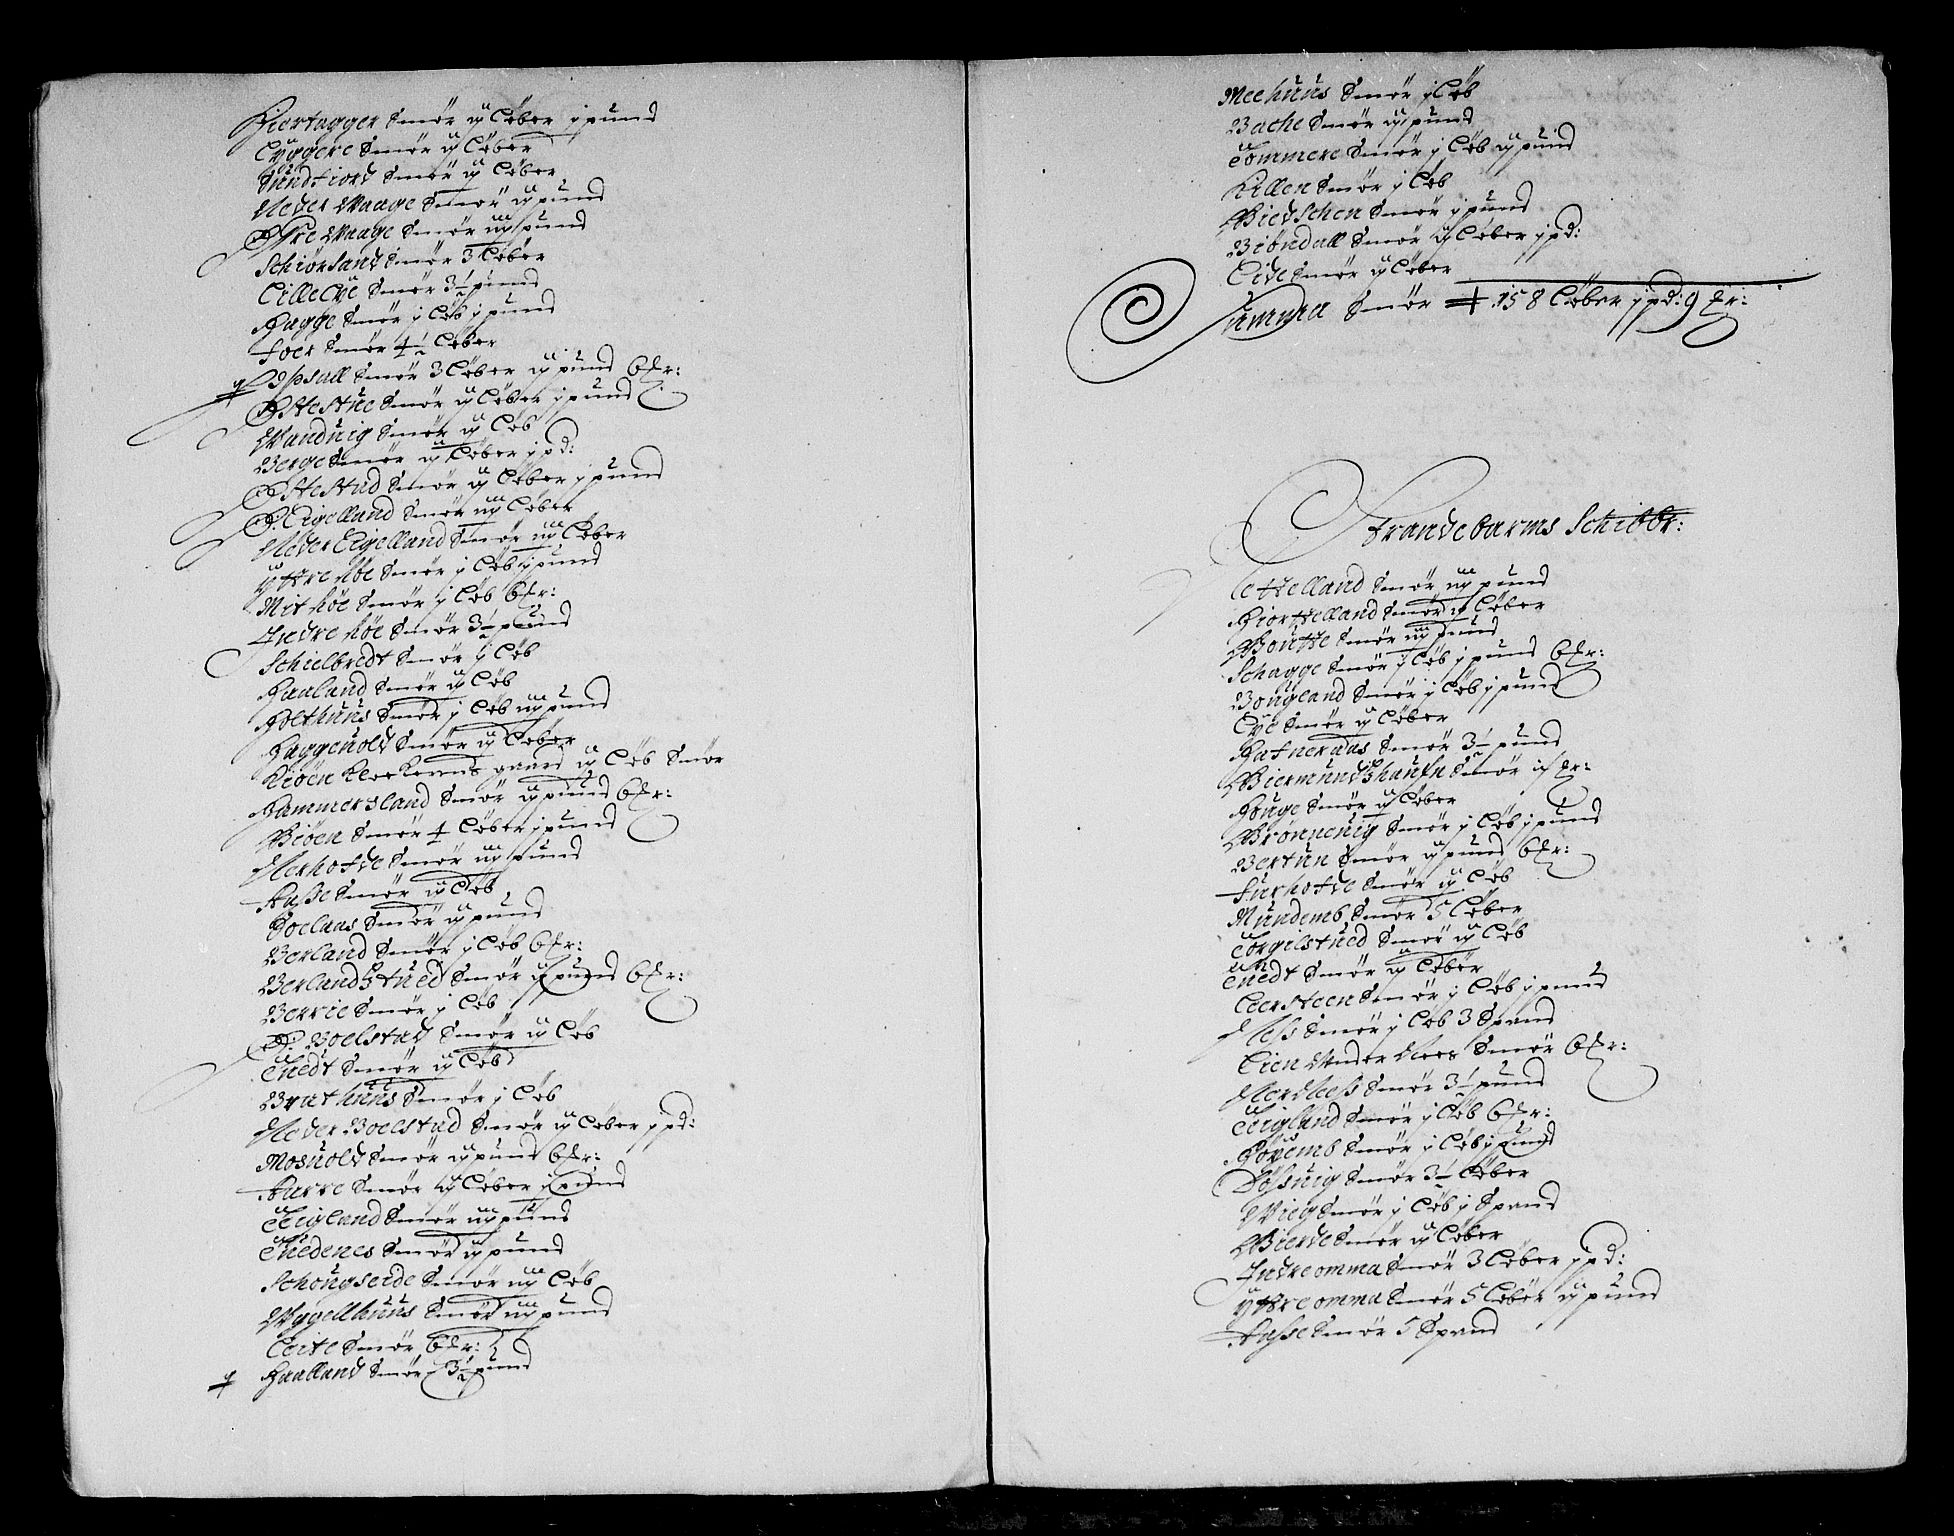 Hiertagger Smør ij Løber j pund
Lyggere Smør ij Løber
Sundfiord Smør ij Løber
Neder Waage Smør ij pund
Øfre Waage Smør iij pund
Schiørsand Smør 3 Løber
Lille Lye Smør 3½ pund
Hagge Smør j Løb j pund
Foer Smør 4½ Løber
Opsall Smør 3 Løber ij pund 6 Mr:
Østestue Smør ij Løber j pund
Wanduig Smør ij Løb
Berge Smør ij Løber j pd:
Østestad Smør ij Løber j pund
Ø: Eigelland Smør iij Løber
Neder Eigelland Smør iij Løber
Yttre Høe Smør j Løb j pund
Mit Høe Smør j Løb 6 Mr:
Indre Høe Smør 3½ pund
Schielbredt Smør j Løb
Haaland Smør ij Løb
Holthuus Smør j Løb iij pund
Haggeuold Smør ij Løber
Kiøen Klockerens gaard ij Løb Smør
Hammersland Smør ij pund 6 Mr:
Biøen Smør 4 Løber j pund
Nerhofde Smør iij pund
Aasse Smør ij Løb
Boelaas Smør ij pund
Berland Smør j Løb 6 Mr:
Berlandstued Smør ij pund 6 Mr:
Berrie Smør j Løb
Ø: Boelstad Smør ij Løb
Tuedt Smør ij Løb
Brathuus Smør j Løb
Neder Boelstad Smør ij Løber j pd:
Mosuold Smør ij pund 6 Mr:
Aarre Smør ij Løber j pund
Teigland Smør iij pund
Tuedenes Smør ij pund
Schougseide Smør iij Løb
Wgellhuus Smør iij pund
Leite Smør 6 Mr:
Haalland Smør 3½ pund
Meehuus Smør j Løb
Bache Smør ij pund
Tommere Smør j Løb ij pund
Killen Smør j Løb
Biedschen Smør j pund
Biøndall Smør ij Løber j pd:
Eide Smør ij Løber
Summa Smør 158 Løber j pd: 9 Mr:
Strandebarms Schibbr:
Tettelland Smør iij pund
Hiortelland Smør ij Løber
Boutte Smør iij pund
Schagge Smør j Løb j pund 6 Mr:
Bougland Smør j Løb j pund
Lye Smør ij Løber
Hafneraas Smør 3½ pund
Biermundshaufn Smør Mr:
Houge Smør ij Løber
Brønneuig Smør j Løb j pund
Bertun Smør ij pund 6 Mr:
Furhofde Smør ij Løb
Mundemb Smør 5 Løber
Torgilstued Smør ij Løb
Tuedt Smør ij Løber
Leersteen Smør j Løb j pund
Ness Smør j Løb 3 Spand
Lien Under Nees Smør 6 Mr:
Nerness Smør 3½ pund
Teigland Smør j Løb 6 Mr:
Houemb Smør j Løb j pund
Døssuig Smør 3½ Løber
Wiig Smør j Løb j Spand
Bierde Smør ij Løber
Indre omma Smør 3 Løber j pd:
Yttre omma Smør 5 Løber ij pund
Aasse Smør 5 Spand